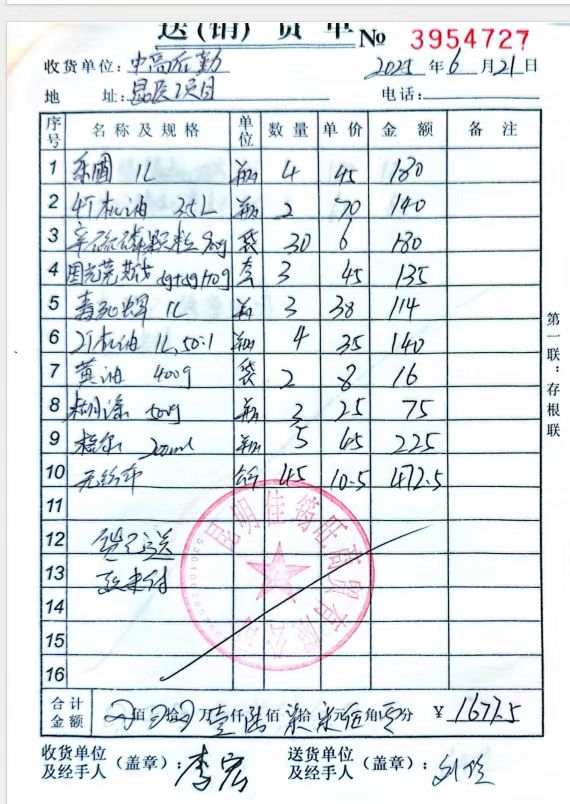 送(销)货单 № 3954727
收货单位:中高后勤 2025年6月21日
地 址:昆医项目 电话:
序号 名称及规格 单位 数量 单价 金额 备注
1 乐圃 1L 瓶 4 45 180
2 4T机油 3.5L 瓶 2 70 140
3 辛硫磷颗粒 袋 30 6 180
4 国光莱斯戈 套 3 45 135
5 1L 瓶 3 38 114
6 2T机油 1L,50:1 瓶 4 35 140
7 黄油 400g 袋 2 8 16
8 糊涂 瓶 3 25 75
9 200ml 瓶 5 45 225
10 无纺布 45 10.5 472.5
11
12 货已送
13 款未付
14
15
16
合计金额 佰 拾 万壹仟陆佰柒拾柒元伍角零分 ¥1677.5
收货单位及经手人(盖章):李宏 送货单位及经手人(盖章):
第一联:存根联